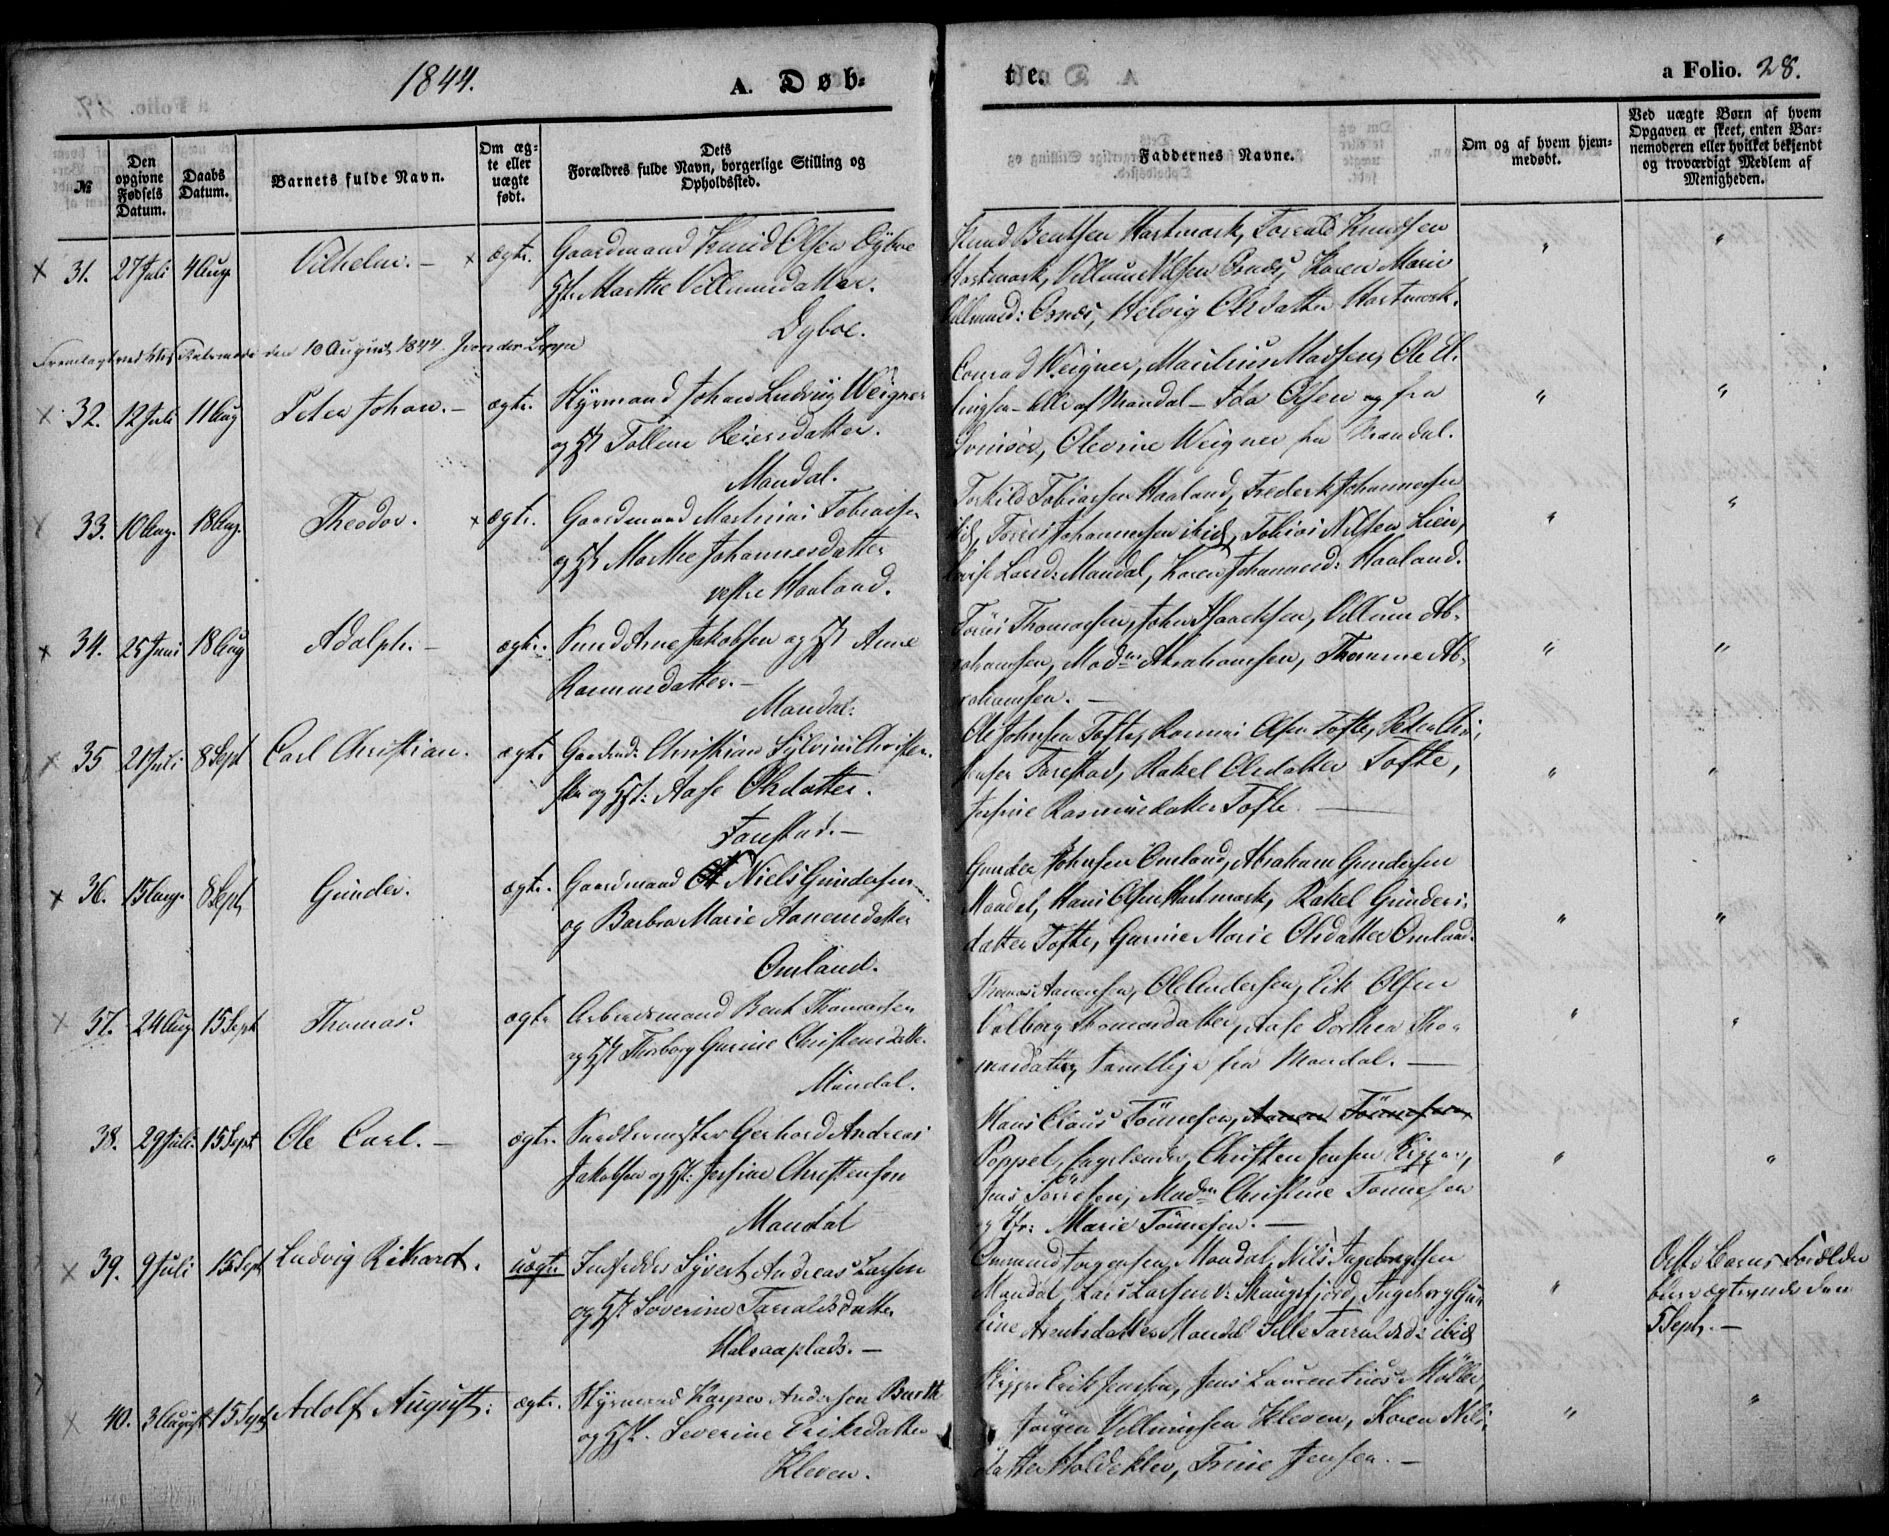 1844.
A. Døb-
te.
a Folio. 28.
№
Den opgivne Fødsels Datum.
Daabs Datum.
Barnets fulde Navn.
Om ægte eller uægte født.
Dets Forældres fulde Navn, borgerlige Stilling og Opholdssted.
Faddernes Navne.
Om og af hvem hjemmedøbt.
Ved uægte Børn af hvem Opgaven er skeet, enten Barnemoderen eller hvilket bekjendt og troværdigt Medlem af Menigheden.
31. 27 Juli 4 Aug. Vilhelm. - ægte. Gaardmand Knud Olsen Dyboe
Hst. Marthe Villumsdatter.
Dyboe.
Knud Bentsen Hartmark, Torvald Knudsen
Hartmark, Villum Nilsen Osnes, Karen Marie
Villumsd: Osnes, Helvig Olsdatter Hartmark.
den 10 August 1844.
32. 12 Juli 11 Aug Peter Johan. - ægte. Styrmand Johan Ludvig Weigner
og Hst Tolline Reiersdatter.
Mandal.
Conrad Weigner, Maulius Madsen, Ole El-
lingsen - Alle af Mandal - Ida Olsen og fra
Svinøer, Olevine Weigner fra Mandal.
33. 10 Aug. 18 Aug. Theodor. ægte. Gaardmand Martinius Tobiassen
og Hst Marthe Johannesdatter
vestre Haaland.
Torkild Tobiassen Haaland, Frederik Johannessen
ibid, Torris Johannessen ibid, Tobias Nilsen Lien,
Larsd: Mandal, Karen Johannesd: Haaland.
34. 25 Juni 18 Aug Adolph. - ægte. Smed Arne Jakobsen og Hst Anne
Rasmusdatter. -
Mandal.
Torris Thomassen, John Isaachsen, Villum Ab-
rahamsen, Madm Abrahamsen, Thomine Ab-
rahamsen. -
35 21 Juli 8 Sept Carl Christian. ægte Gaardmd: Christian Sylvius Christen-
sen og Hst: Aase Olsdatter.
Farestad. -
Ole Johnsen Tofte, Rasmus Olsen Tofte, Peder
Farestad, Rakel Olsdatter Tofte,
Josine Rasmusdatter Tofte.
36. 15 Aug. 8 Sept. Gunder. ægte. Gaardmand Niels Gundersen
og Barbra Marie Aanensdatter
Omland.
Gunder Johnsen Omland, Abraham Gundersen
Mandal, Hans Olsen Hartmark, Rakel Gunders-
datter Tofte, Gurine Marie Olsdatter Omland.
37. 24 Aug 15 Sept Thomas. ægte Arbeidsmand Bent Thomassen
og Hst Thorborg Gurine Christensdatter
Mandal.
Thomas Aanensen, Ole Andersen, Erik Olsen
Valborg Thomasdatter, Aase Dorthea Tho-
masdatter, Samtlige fra Mandal. -
38. 29 Juli. 15 Sept Ole Carl. - ægte. Snedkermester Gerhard Andreas
Jakobsen og Hst: Josine Christensen
Mandal
Hans Claus Tönnesen, Aanen Tönnesen
Poppel, Christen Jensen Kigger,
Jens Torrisen, Madm Christine Tönnesen
og Jfr: Marie Tönnesen. -
39. 9 Juli 15 Sept Ludvig Rikard. uægte Indsidder Syvert Andreas Larsen
og Hst Severine Tarraldsdatter
Halsaaplads. -
Omund Torgersen Mandal, Nils Ingebregtsen
Mandal, Lars Larsen v: Skaugsfjord, Ingeborg Gu-
rine Arentsdatter Mandal, Sille Tarraldsd: ibid
Dette Barns Forældre
bleve ægteviede den
5 Sept. -
40. 3 August 15 Sept Adolf August. ægte. Styrmand Kasper Andersen Barth
og Hst. Severine Eriksdatter
Kleven.
Skipper Erik Jensen, Jens Laurentius Møller,
Jørgen Villumsen Kleven, Karen Nils-
datter Holdekler, Trine Jensen. -